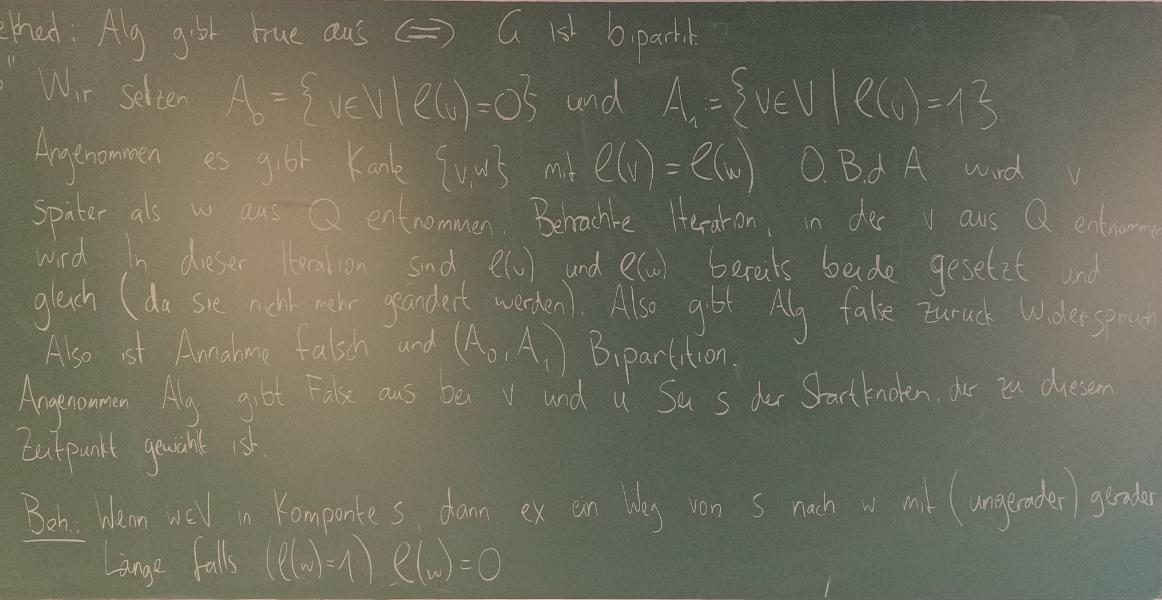 ethed: Alg gibt true aus ⇔ G ist bipartit.
" Wir setzen A₀ = {v∈V | l(v)=0} und A₁ := {v∈V | l(v)=1}.
Angenommen es gibt Kante {v,w} mit l(v) = l(w) O.B.d A wird v
später als w aus Q entnommen. Betrachte Iteration, in der v aus Q entnomme
wird In dieser Iteration sind l(v) und l(w) bereits beide gesetzt und
gleich (da sie nicht mehr geändert werden). Also gibt Alg false zurück Widerspruch
Also ist Annahme falsch und (A₀, A₁) Bipartition.
Angenommen Alg. gibt False aus bei v und u. Sei s der Startknoten, der zu diesem
Zeitpunkt gewählt ist.
Beh.: Wenn w∈V in Komponte s, dann ex ein Weg von s nach w mit (ungerader) gerader
Länge falls (l(w)=1) l(w)=0